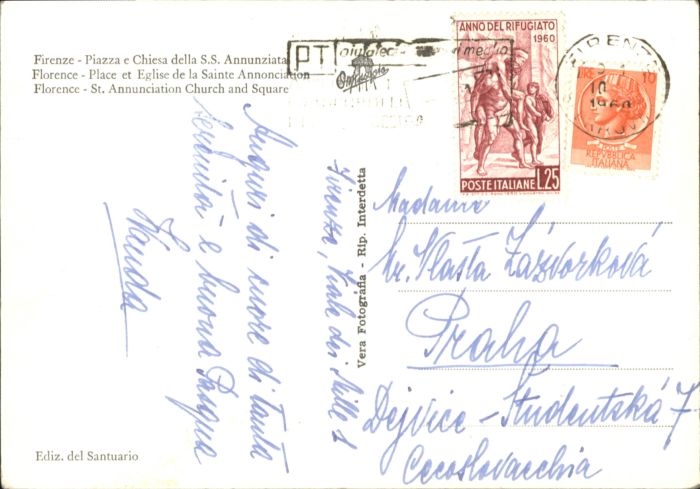 Firenze - Piazza e Chiesa della S.S. Annunziata
Florence - Place et Eglise de la Sainte Annonciation
Florence - St. Annunciation Church and Square
Auguri di cuore di tanta
serenità e buona Pasqua
Wanda
Firenze, Viale dei Mille 1
Vera Fotografia - Rip. Interdetta
Ediz. del Santuario
PT
ANNO DEL RIFUGIATO
1960
POSTE ITALIANE L.25
FIRENZE
10
1960
LIRE 10
POSTE
REPVBBLICA
ITALIANA
Madame
Vlasta Zázvorková
Praha
Dejvice - Studentská 7
Cecoslovacchia